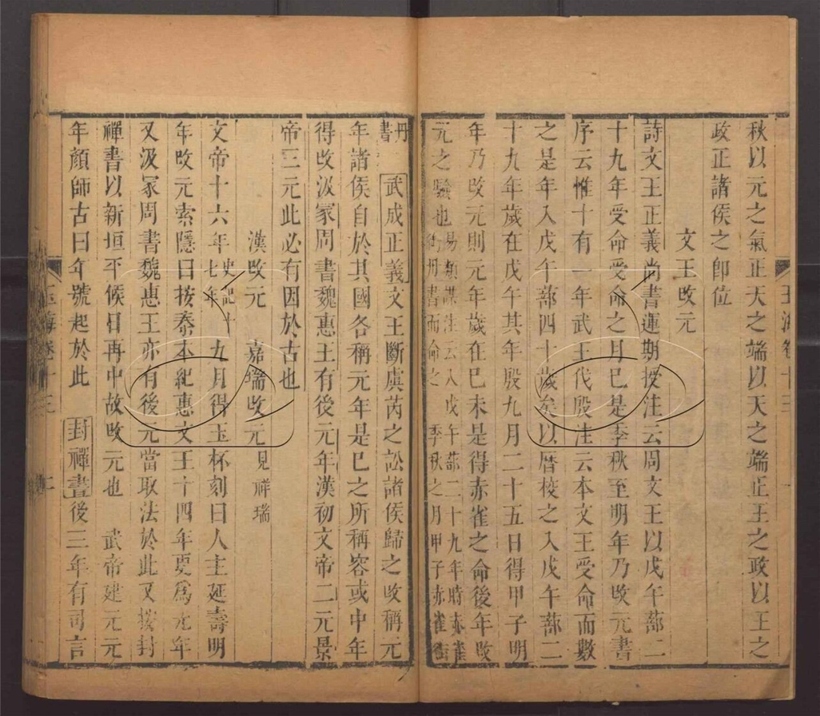 秋以元之氣正天之端以天之端正王之政以王之
政正諸侯之卽位
文王改元
詩文王正義尚書運期授注云周文王以戊午蔀二
十九年受命受命之月已是季秋至明年乃改元書
序云惟十有一年武王伐殷注云本文王受命而數
之是年入戊午蔀四十歲矣以曆校之入戊午蔀二
十九年歲在戊午其年殷九月二十五日得甲子明
年乃改元則元年歲在已未是得赤雀之命後年改
元之驗也易類謀注云入戊午蔀二十九年時赤雀銜
丹書而命之 季秋之月甲子赤雀銜
丹書 武成正義文王斷虞芮之訟諸侯歸之改稱元
年諸侯自於其國各稱元年是已之所稱容或中年
得改汲冢周書魏惠王有後元年漢初文帝二元景
帝三元此必有因於古也
漢改元 嘉瑞改元見祥瑞
文帝十六年史記十七年九月得玉杯刻曰人主延壽明
年改元索隱曰按秦本紀惠文王十四年更爲元年
又汲冢周書魏惠王亦有後元當取法於此又按封
禪書以新垣平候日再中故改元也 武帝建元元
年顏師古曰年號起於此 封禪書後三年有司言
玉海卷十三 二
玉海卷十三